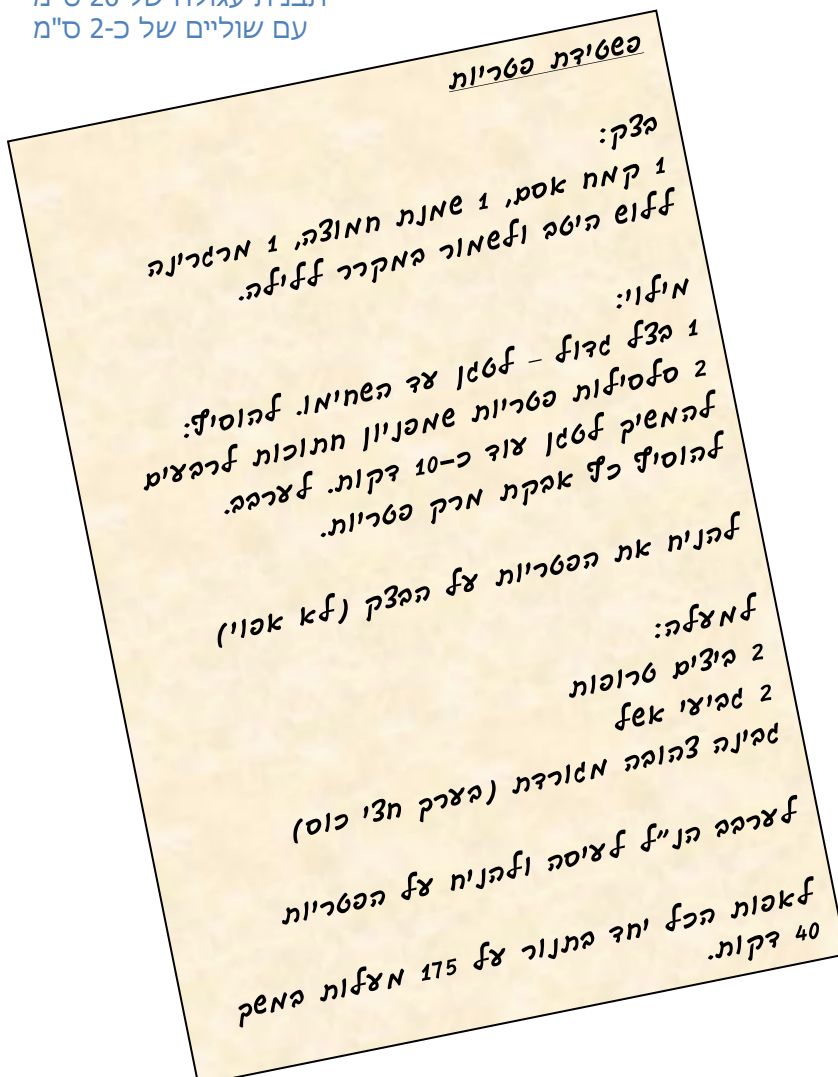 תבנית עגולה של 26 ס"מ
עם שוליים של כ-2 ס"מ
פשטידת פטריות
בצק:
1 קמח אסם, 1 שמנת חמוצה, 1 מרגרינה
ללוש היטב ולשמור במקרר ללילה.
מילוי:
1 בצל גדול – לטגן עד השחימו. להוסיף:
2 סלסילות פטריות שמפניון חתוכות לרבעים
להמשיך לטגן עוד כ-10 דקות. לערבב.
להוסיף כף אבקת מרק פטריות.
להניח את הפטריות על הבצק (לא אפוי)
למעלה:
2 ביצים טרופות
2 גביעי אשל
גבינה צהובה מגורדת (בערך חצי כוס)
לערבב הנ"ל לעיסה ולהניח על הפטריות
לאפות הכל יחד בתנור על 175 מעלות במשך
40 דקות.